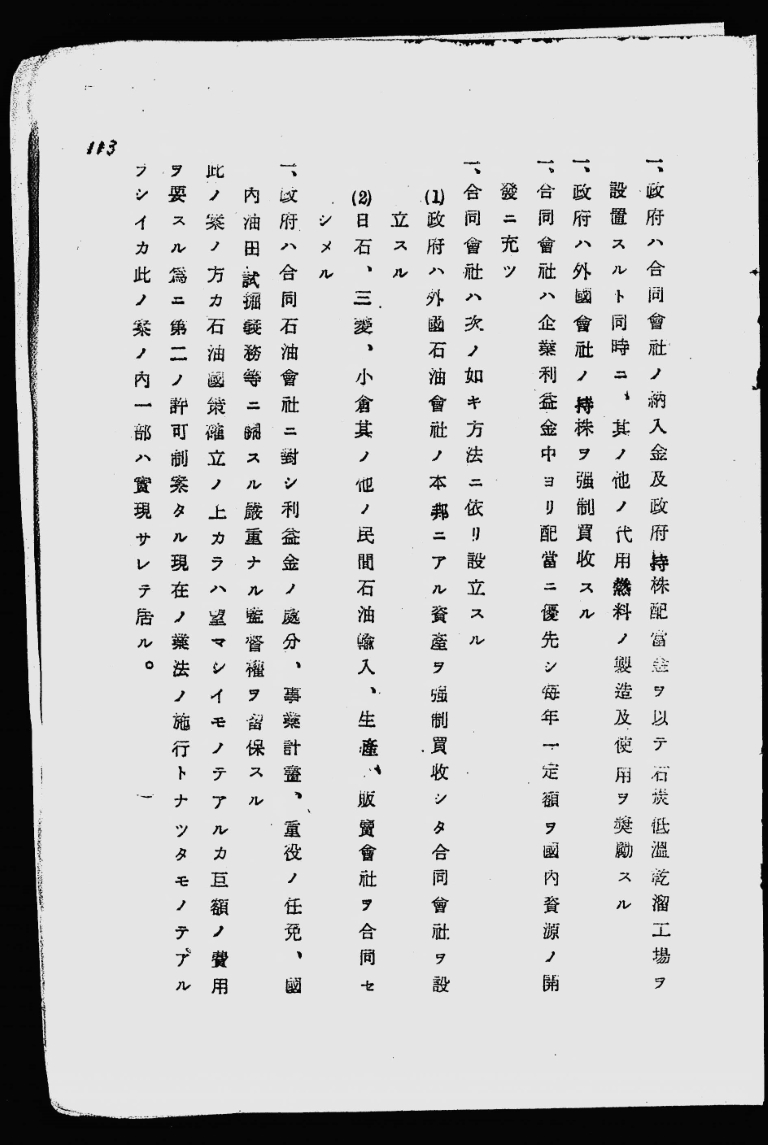 一、政府ハ合同會社ノ納入金及政府持株配當金ヲ以テ石炭低溫乾溜工場ヲ
設置スルト同時ニ、其ノ他ノ代用燃料ノ製造及使用ヲ奬勵スル
一、政府ハ外國會社ノ持株ヲ强制買收スル
一、合同會社ハ企業利益金中ヨリ配當ニ優先シ每年一定額ヲ國內資源ノ開
發ニ充ツ
一、合同會社ハ次ノ如キ方法ニ依リ設立スル
(1)政府ハ外國石油會社ノ本邦ニアル資產ヲ强制買收シタ合同會社ヲ設
立スル
(2)日石、三菱、小倉其ノ他ノ民間石油輸入、生產、販賣會社ヲ合同セ
シメル
一、政府ハ合同石油會社ニ對シ利益金ノ處分、事業計畫、重役ノ任免、國
內油田試掘義務等ニ關スル嚴重ナル監督權ヲ留保スル
此ノ案ノ方カ石油國策確立ノ上カラハ望マシイモノテアルカ巨額ノ費用
ヲ要スル爲ニ第二ノ許可制案タル現在ノ業法ノ施行トナツタモノテアル
ラシイカ此ノ案ノ內一部ハ實現サレテ居ル。
113